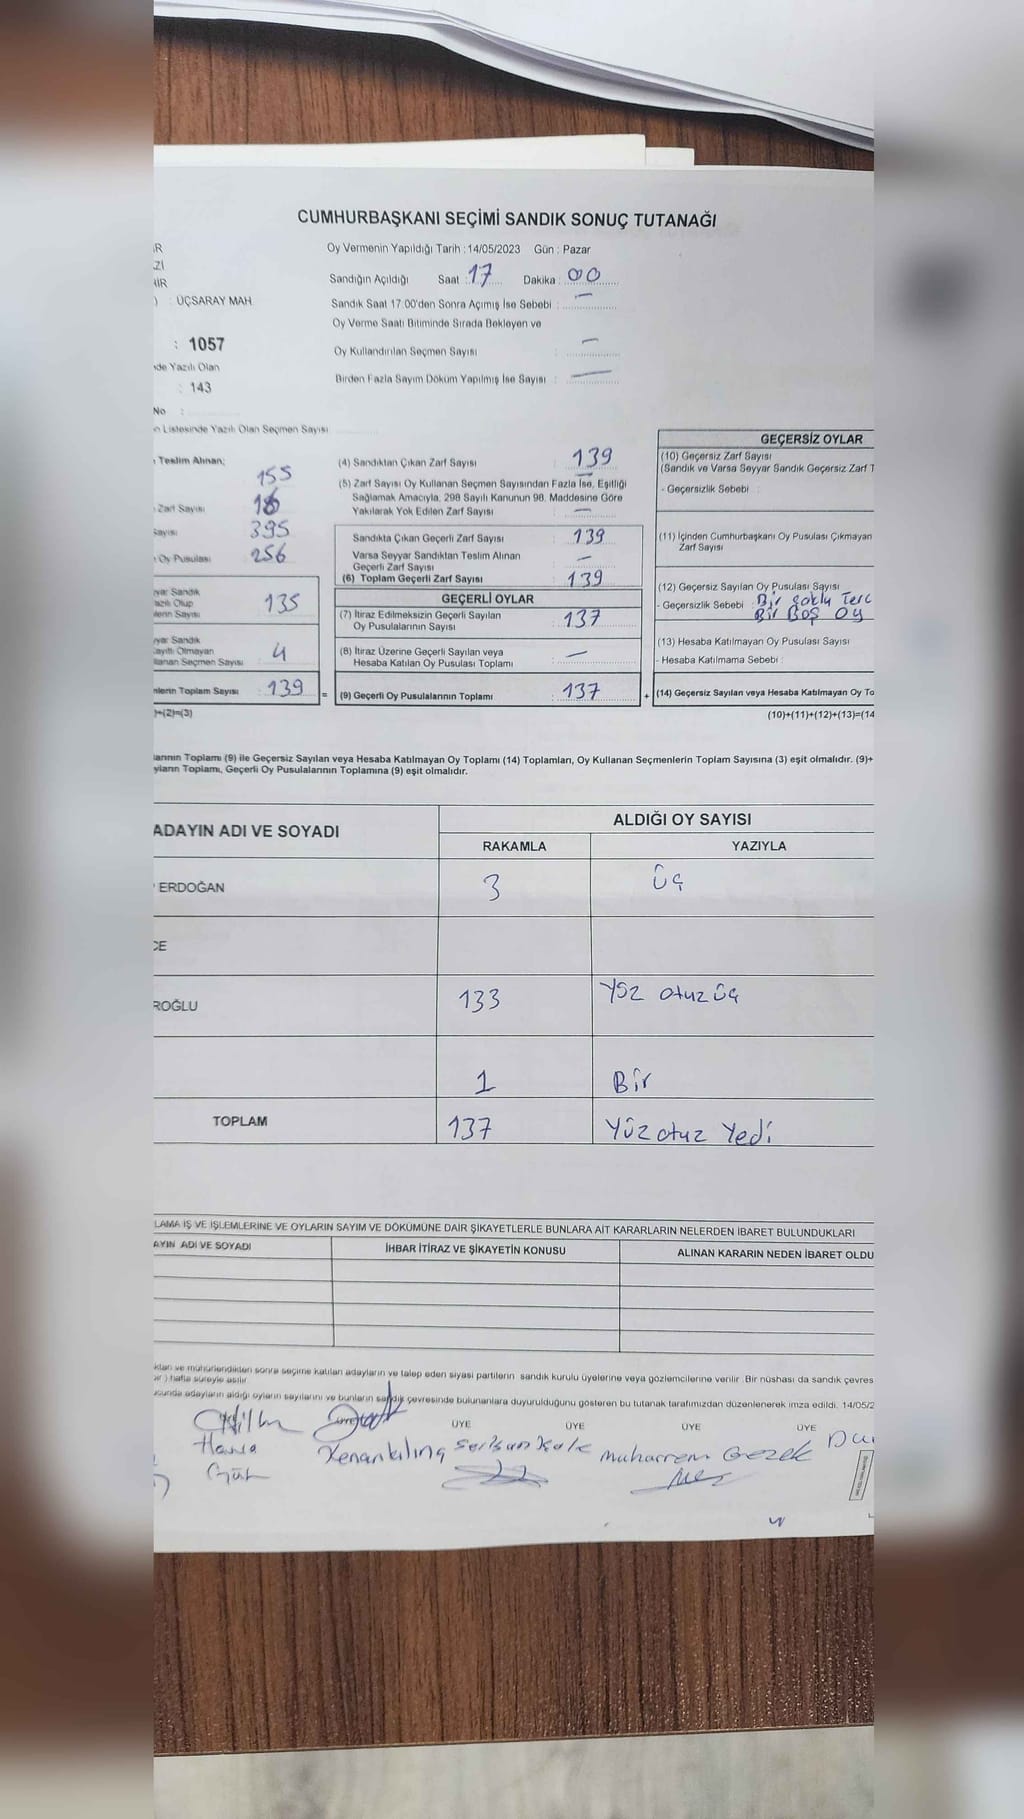 CUMHURBAŞKANI SEÇİMİ SANDIK SONUÇ TUTANAĞI
Oy Vermenin Yapıldığı Tarih : 14/05/2023 Gün : Pazar
Sandığın Açıldığı Saat : 17 Dakika : 00
ÜÇSARAY MAH.
Sandık Saat 17:00'den Sonra Açımış İse Sebebi : —
Oy Verme Saati Bitiminde Sırada Bekleyen ve
Oy Kullandırılan Seçmen Sayısı : —
: 1057
Birden Fazla Sayım Döküm Yapılmış İse Sayısı : —
nde Yazılı Olan
: 143
No :
n Listesinde Yazılı Olan Seçmen Sayısı
Teslim Alınan;
155
Zarf Sayısı
Sayısı 395
Oy Pusulası 256
yar Sandık
azılı Olup
lerin Sayısı 135
yar Sandık
ayıtlı Olmayan
llanan Seçmen Sayısı 4
nlerin Toplam Sayısı : 139 =
)+(2)=(3)
(4) Sandıktan Çıkan Zarf Sayısı : 139
(5) Zarf Sayısı Oy Kullanan Seçmen Sayısından Fazla İse, Eşitliği
Sağlamak Amacıyla, 298 Sayılı Kanunun 98. Maddesine Göre
Yakılarak Yok Edilen Zarf Sayısı : —
Sandıkta Çıkan Geçerli Zarf Sayısı : 139
Varsa Seyyar Sandıktan Teslim Alınan
Geçerli Zarf Sayısı : —
(6) Toplam Geçerli Zarf Sayısı : 139
GEÇERLİ OYLAR
(7) İtiraz Edilmeksizin Geçerli Sayılan
Oy Pusulalarının Sayısı : 137
(8) İtiraz Üzerine Geçerli Sayılan veya
Hesaba Katılan Oy Pusulası Toplamı : —
(9) Geçerli Oy Pusulalarının Toplamı : 137 +
GEÇERSİZ OYLAR
(10) Geçersiz Zarf Sayısı
(Sandık ve Varsa Seyyar Sandık Geçersiz Zarf T
- Geçersizlik Sebebi :
(11) İçinden Cumhurbaşkanı Oy Pusulası Çıkmayan
Zarf Sayısı
(12) Geçersiz Sayılan Oy Pusulası Sayısı
- Geçersizlik Sebebi : Bir çoklu Terc
Bir Boş Oy
(13) Hesaba Katılmayan Oy Pusulası Sayısı
- Hesaba Katılmama Sebebi :
(14) Geçersiz Sayılan veya Hesaba Katılmayan Oy To
(10)+(11)+(12)+(13)=(14
larının Toplamı (9) ile Geçersiz Sayılan veya Hesaba Katılmayan Oy Toplamı (14) Toplamları, Oy Kullanan Seçmenlerin Toplam Sayısına (3) eşit olmalıdır. (9)+
yların Toplamı, Geçerli Oy Pusulalarının Toplamına (9) eşit olmalıdır.
ADAYIN ADI VE SOYADI
ALDIĞI OY SAYISI
RAKAMLA YAZIYLA
ERDOĞAN 3 Üç
CE
ROĞLU 133 Yüz otuz üç
1 Bir
TOPLAM 137 Yüz otuz Yedi
LAMA İŞ VE İŞLEMLERİNE VE OYLARIN SAYIM VE DÖKÜMÜNE DAİR ŞİKAYETLERLE BUNLARA AİT KARARLARIN NELERDEN İBARET BULUNDUKLARI
AYIN ADI VE SOYADI İHBAR İTİRAZ VE ŞİKAYETİN KONUSU ALINAN KARARIN NEDEN İBARET OLDU
kları ve mühürlendikten sonra seçime katılan adayların ve talep eden siyasi partilerin sandık kurulu üyelerine veya gözlemcilerine verilir. Bir nüshası da sandık çevres
bir ) hafta süreyle asılır.
ucunda adayların aldığı oyların sayılarını ve bunların sandık çevresinde bulunanlara duyurulduğunu gösteren bu tutanak tarafımızdan düzenlenerek imza edildi. 14/05/2
ÜYE ÜYE ÜYE ÜYE
Kenan Kılınç Serkan Kale Muharrem Gezek